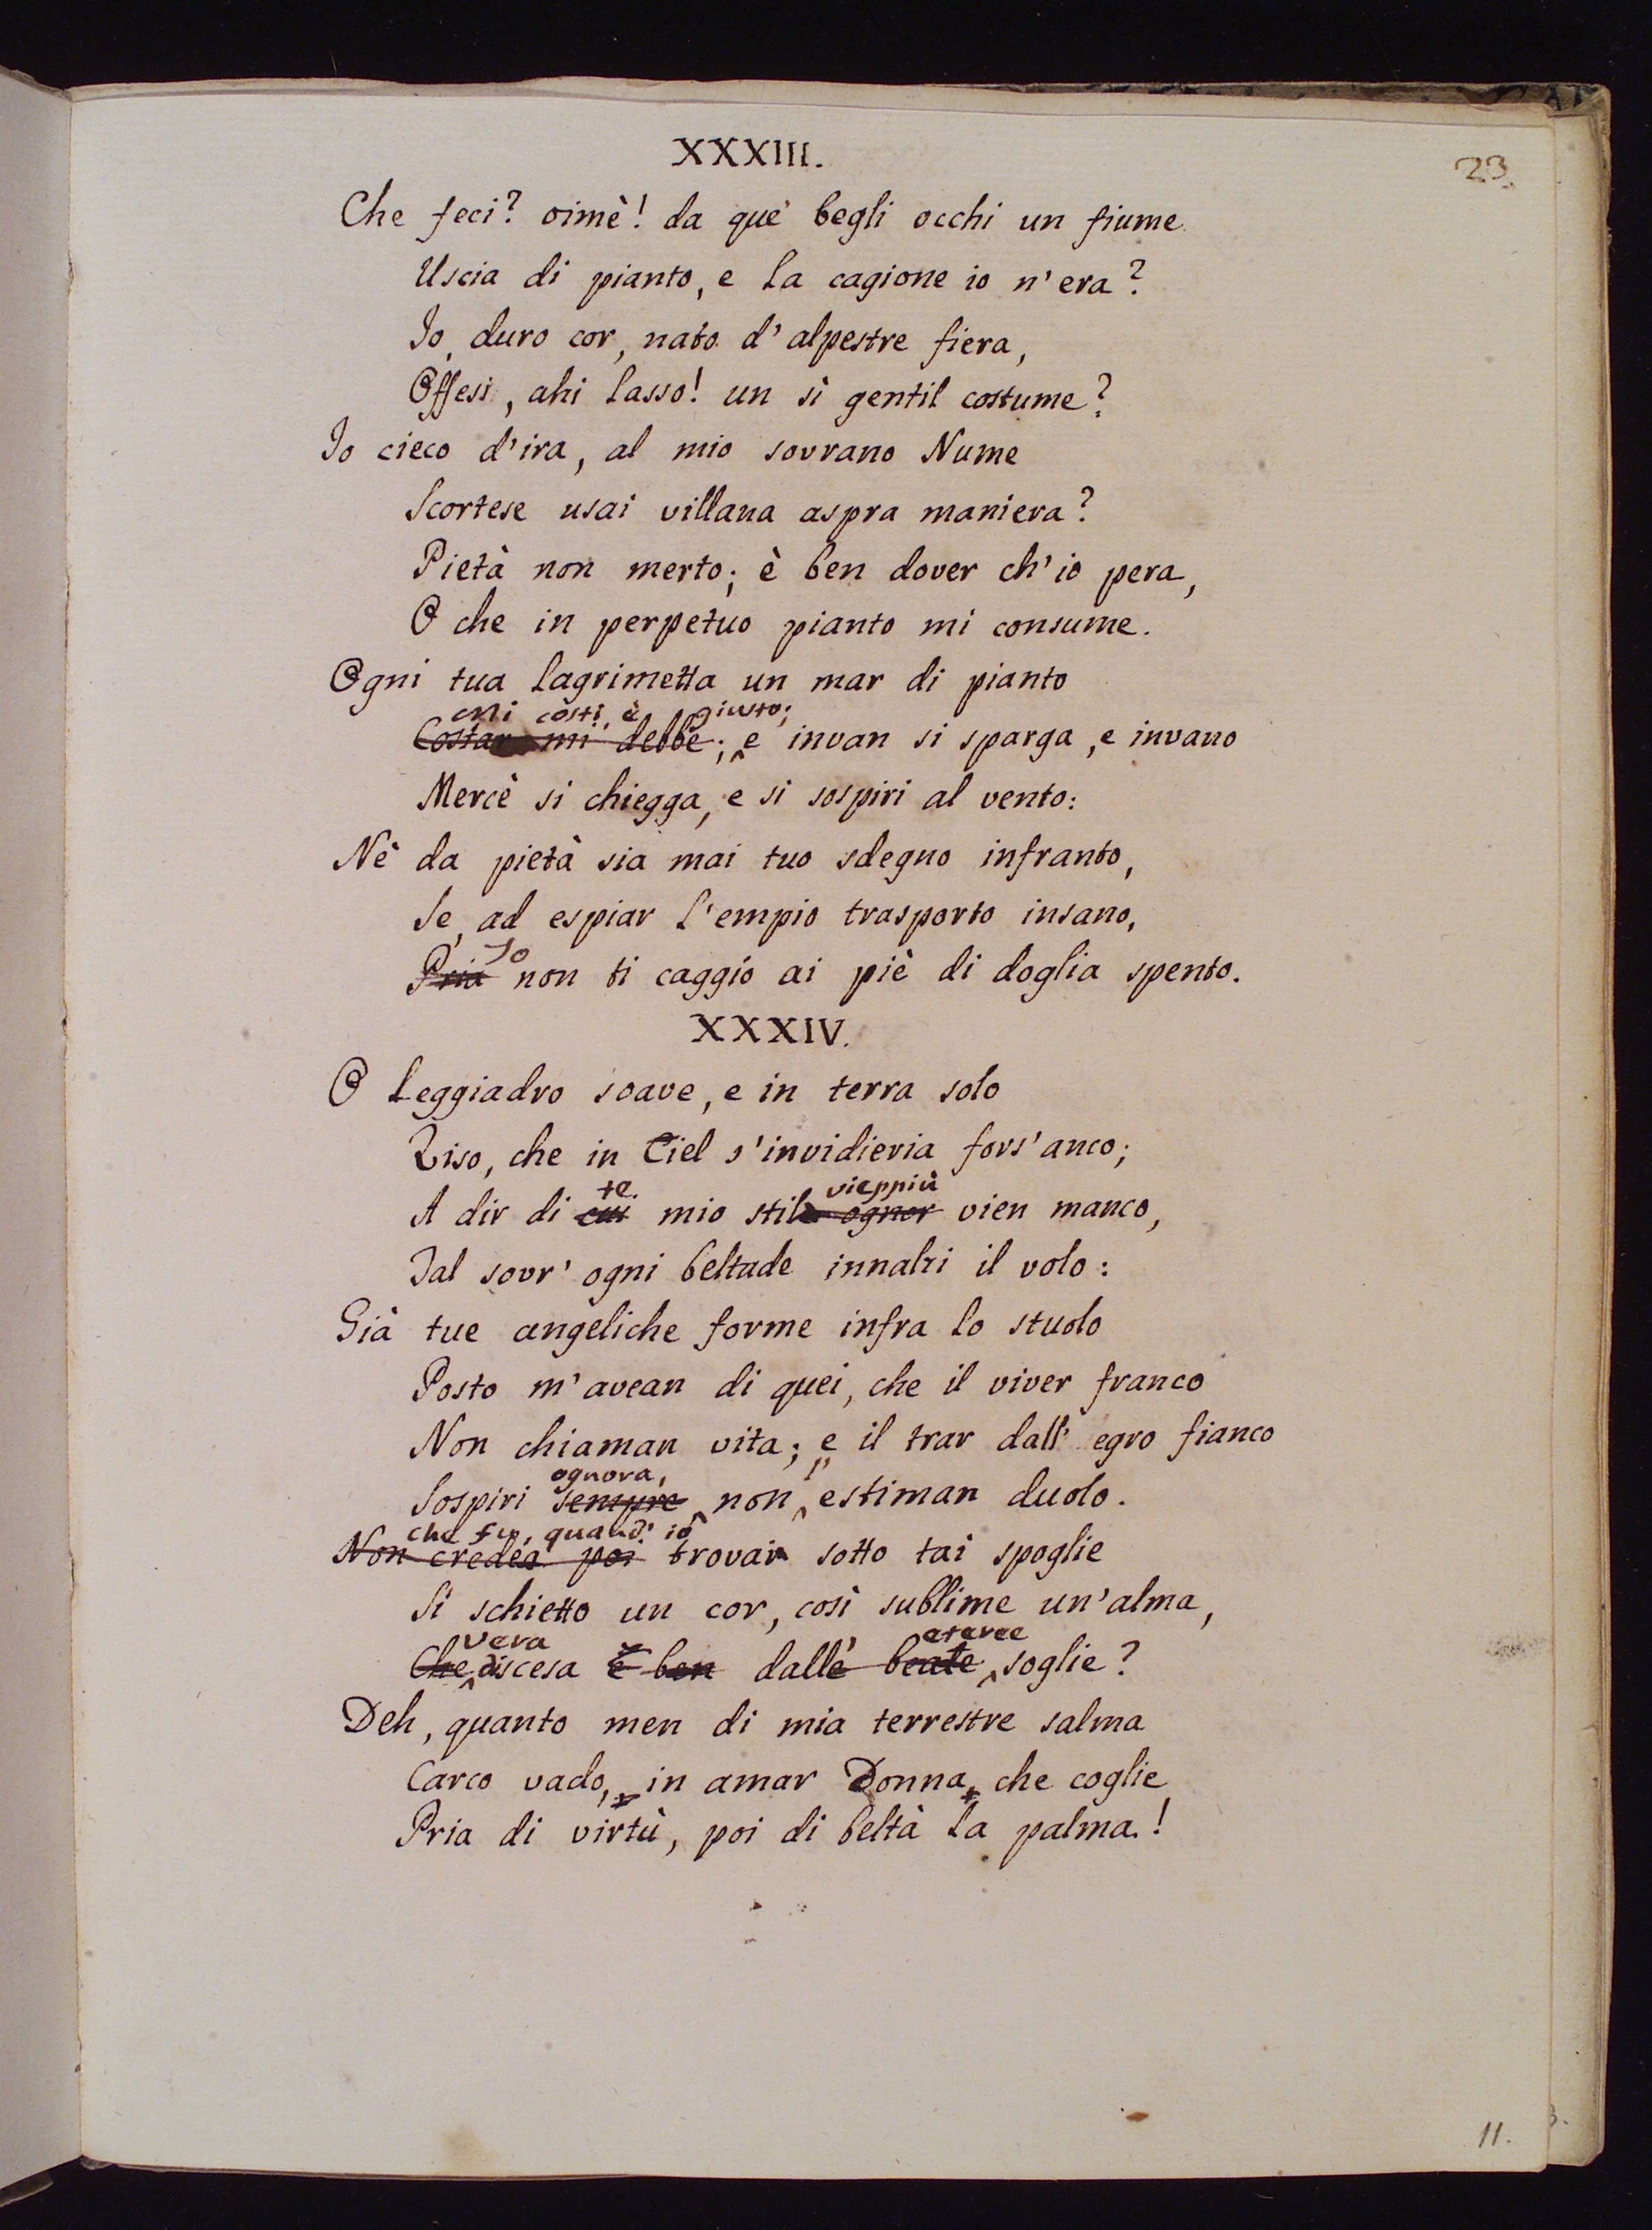 XXXIII.
23.
Che feci? oimè! da que' begli occhi un fiume
Uscia di pianto, e la cagione io n'era?
Io, duro cor, nato d'alpestre fiera,
Offesi, ahi lasso! un sì gentil costume?
Io cieco d'ira, al mio sovrano Nume
Scortese usai villana aspra maniera?
Pietà non merto; è ben dover ch'io pera,
O che in perpetuo pianto mi consume.
Ogni tua lagrimetta un mar di pianto
mi costi, è giusto;
Costar mi debbe; e invan si sparga, e invano
Mercè si chiegga, e si sospiri al vento:
Nè da pietà sia mai tuo sdegno infranto,
Se, ad espiar l'empio trasporto insano,
Io
Pria non ti caggio ai piè di doglia spento.
XXXIV.
O leggiadro soave, e in terra solo
Viso, che in Ciel s'invidieria fors'anco;
te vieppiù
A dir di cui mio stile ognor vien manco,
Tal sovr'ogni beltade innalzi il volo:
Già tue angeliche forme infra lo stuolo
Posto m'avean di quei, che il viver franco
Non chiaman vita; e il trar dall'egro fianco
ognora,
Sospiri sempre non estiman duolo.
che fu, quand'io
Non credea poi trovai sotto tai spoglie
Sì schietto un cor, così sublime un'alma,
vera eteree
Che discesa è ben dalle beate soglie?
Deh, quanto men di mia terrestre salma
Carco vado, in amar Donna, che coglie
Pria di virtù, poi di beltà la palma!
11.